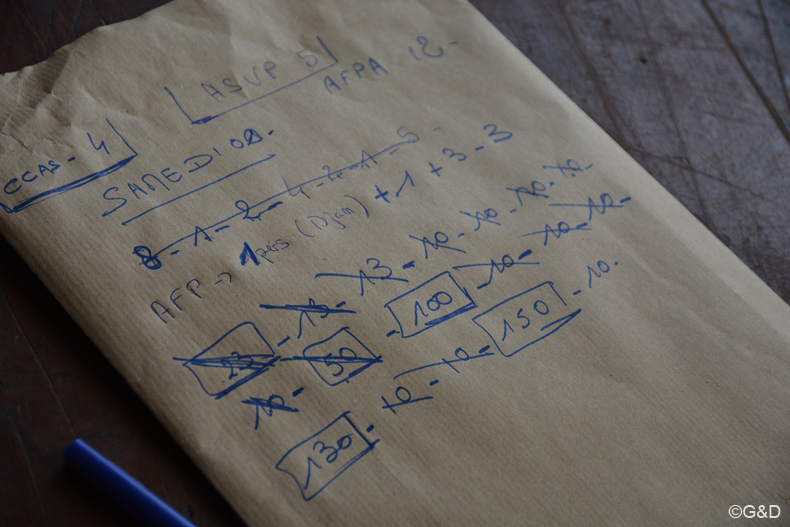 ASVP 5
AFPA 12-
CCAS - 4
SAMEDI 02.
8 - 1 - 2 - 4 - 2 - 1 - 5 -
AFP -> 1 pers (Djam) + 1 + 3 - 3
- 13 - 13 - 10 - 10 - 10 - 10 -
10 - 50 - 100 - 10 - 10 - 10 -
130 - 10 - 10 - 150 - 10.
©G&D